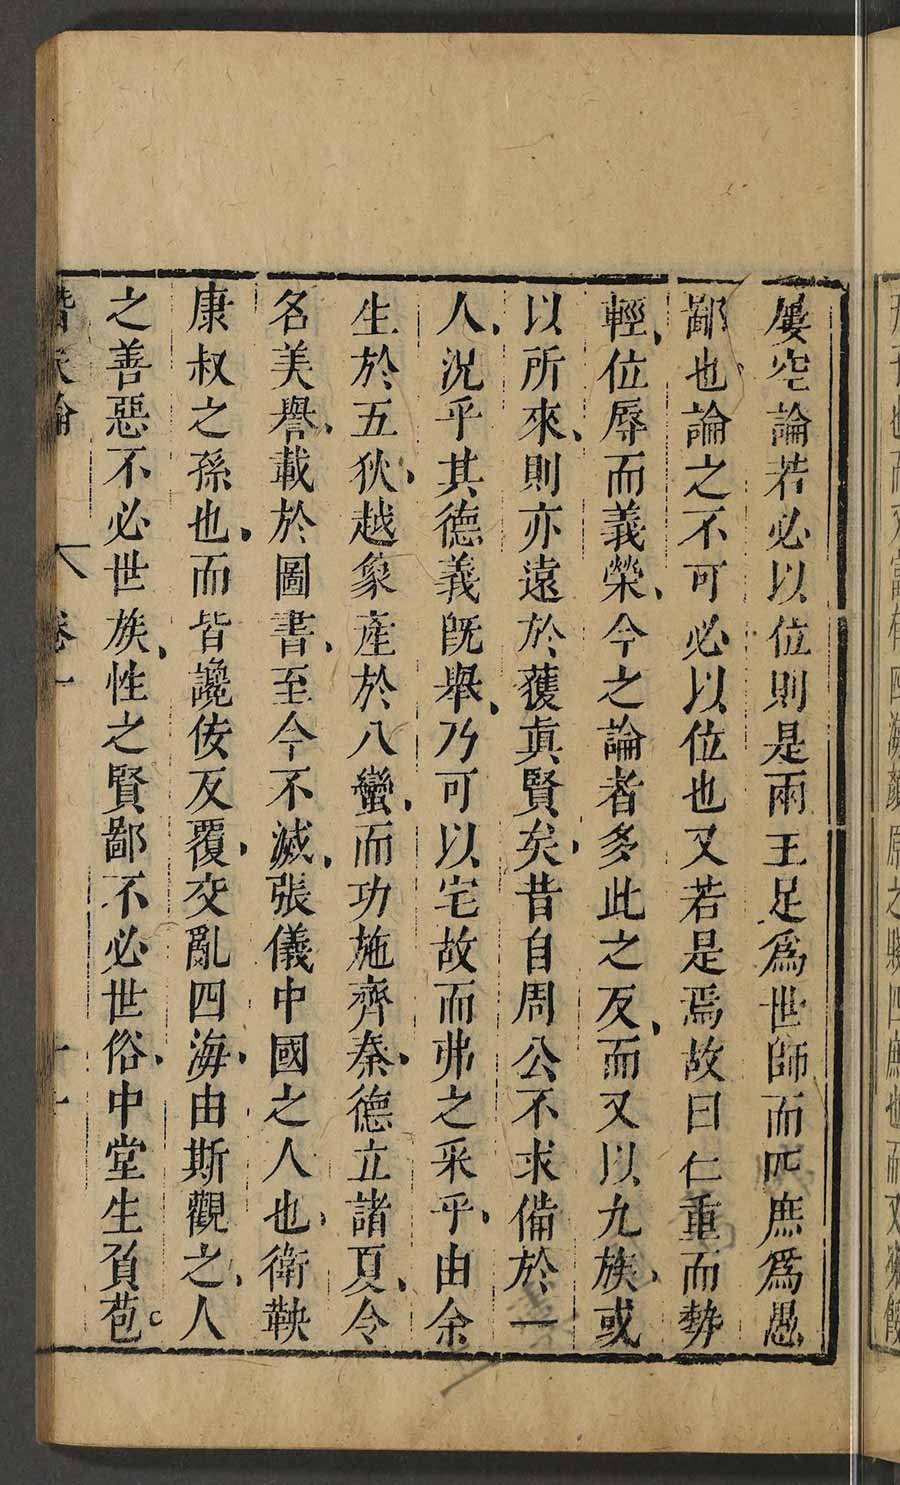 屢空論若必以位則是兩王足爲世師而匹庶爲愚
鄙也論之不可必以位也又若是焉故曰仁重而勢
輕位辱而義榮今之論者多此之反而又以九族或
以所來則亦遠於獲眞賢矣昔自周公不求備於一
人況乎其德義旣舉乃可以宅故而弗之采乎由余
生於五狄越象產於八蠻而功施齊秦德立諸夏令
名美譽載於圖書至今不滅張儀中國之人也衛鞅
康叔之孫也而皆讒佞反覆交亂四海由斯觀之人
之善惡不必世族性之賢鄙不必世俗中堂生負苞
卷一
十一